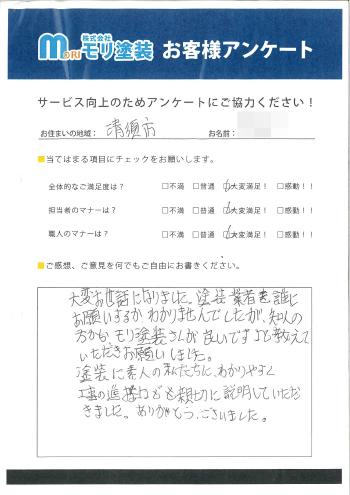 株式会社
MORI モリ塗装 お客様アンケート
サービス向上のためアンケートにご協力ください！
お住まいの地域： 清須市 お名前：
■当てはまる項目にチェックをお願いします。
全体的なご満足度は？ □不満 □普通 ☑大変満足！ □感動！！
担当者のマナーは？ □不満 □普通 ☑大変満足！ □感動！！
職人のマナーは？ □不満 □普通 ☑大変満足！ □感動！！
■ご感想、ご意見を何でもご自由にお書きください。
大変お世話になりました。塗装業者を誰に
お願いするかわかりませんでしたが、知人の
方から、モリ塗装さんが良いですよと教えて
いただきお願いしました。
塗装に素人の私たちに、わかりやすく
工事の進捗なども親切に説明していただ
きました。ありがとうございました。